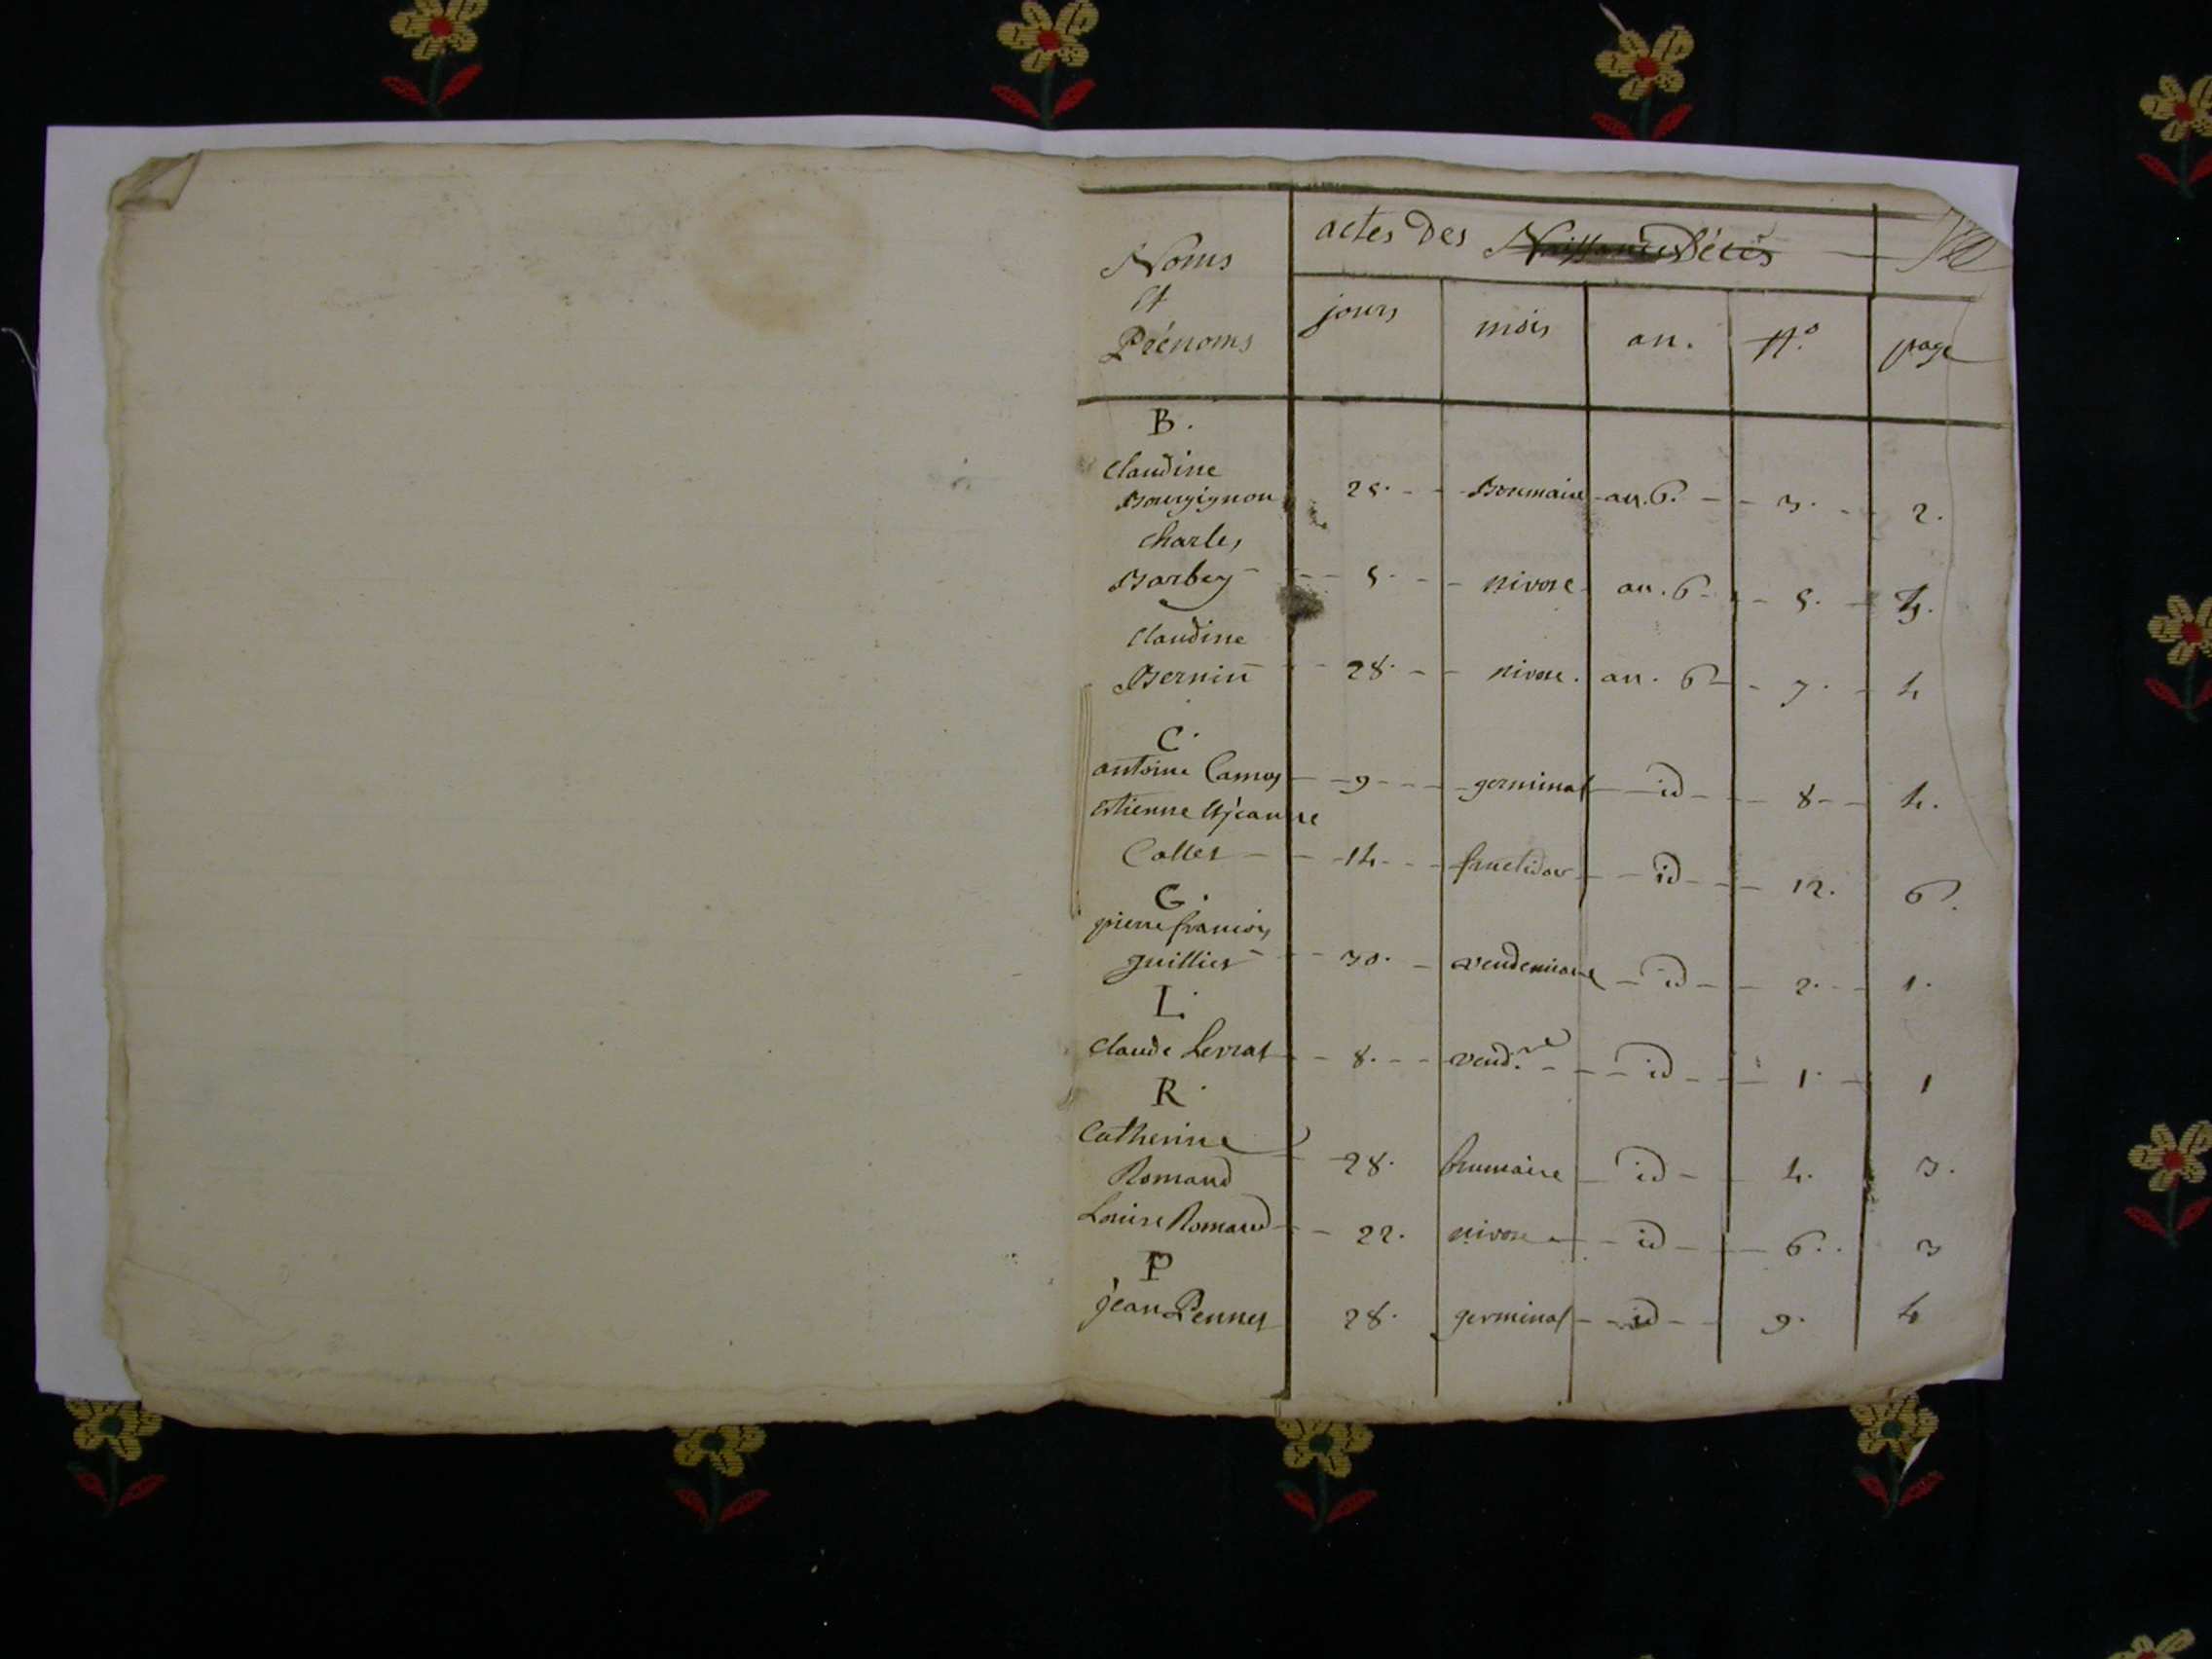 actes des Naissance Décès
Noms
et
Prénoms
jours mois an. N.o page
B.
Claudine
Bourgignon 25. Brumaire an. 6. 3. 2.
Charles
Barbey 5. nivose an. 6 5. 3.
Claudine
Bernin 28. nivose. an. 6 7. 4
C.
antoine Camos 9 germinal id 8 4.
Etienne et jeanne
Collet 14 fructidor id 12. 6.
G.
pierre francois
guillier 30. vendemiaire id 2. 1.
L.
Claude Lerrat 8. vend.re id 1. 1
R.
Catherine
Romand 28. frumaire id 4. 3.
Louise Romand 22. nivose id 6. 3
P
jean Pennet 28. germinal id 9. 4